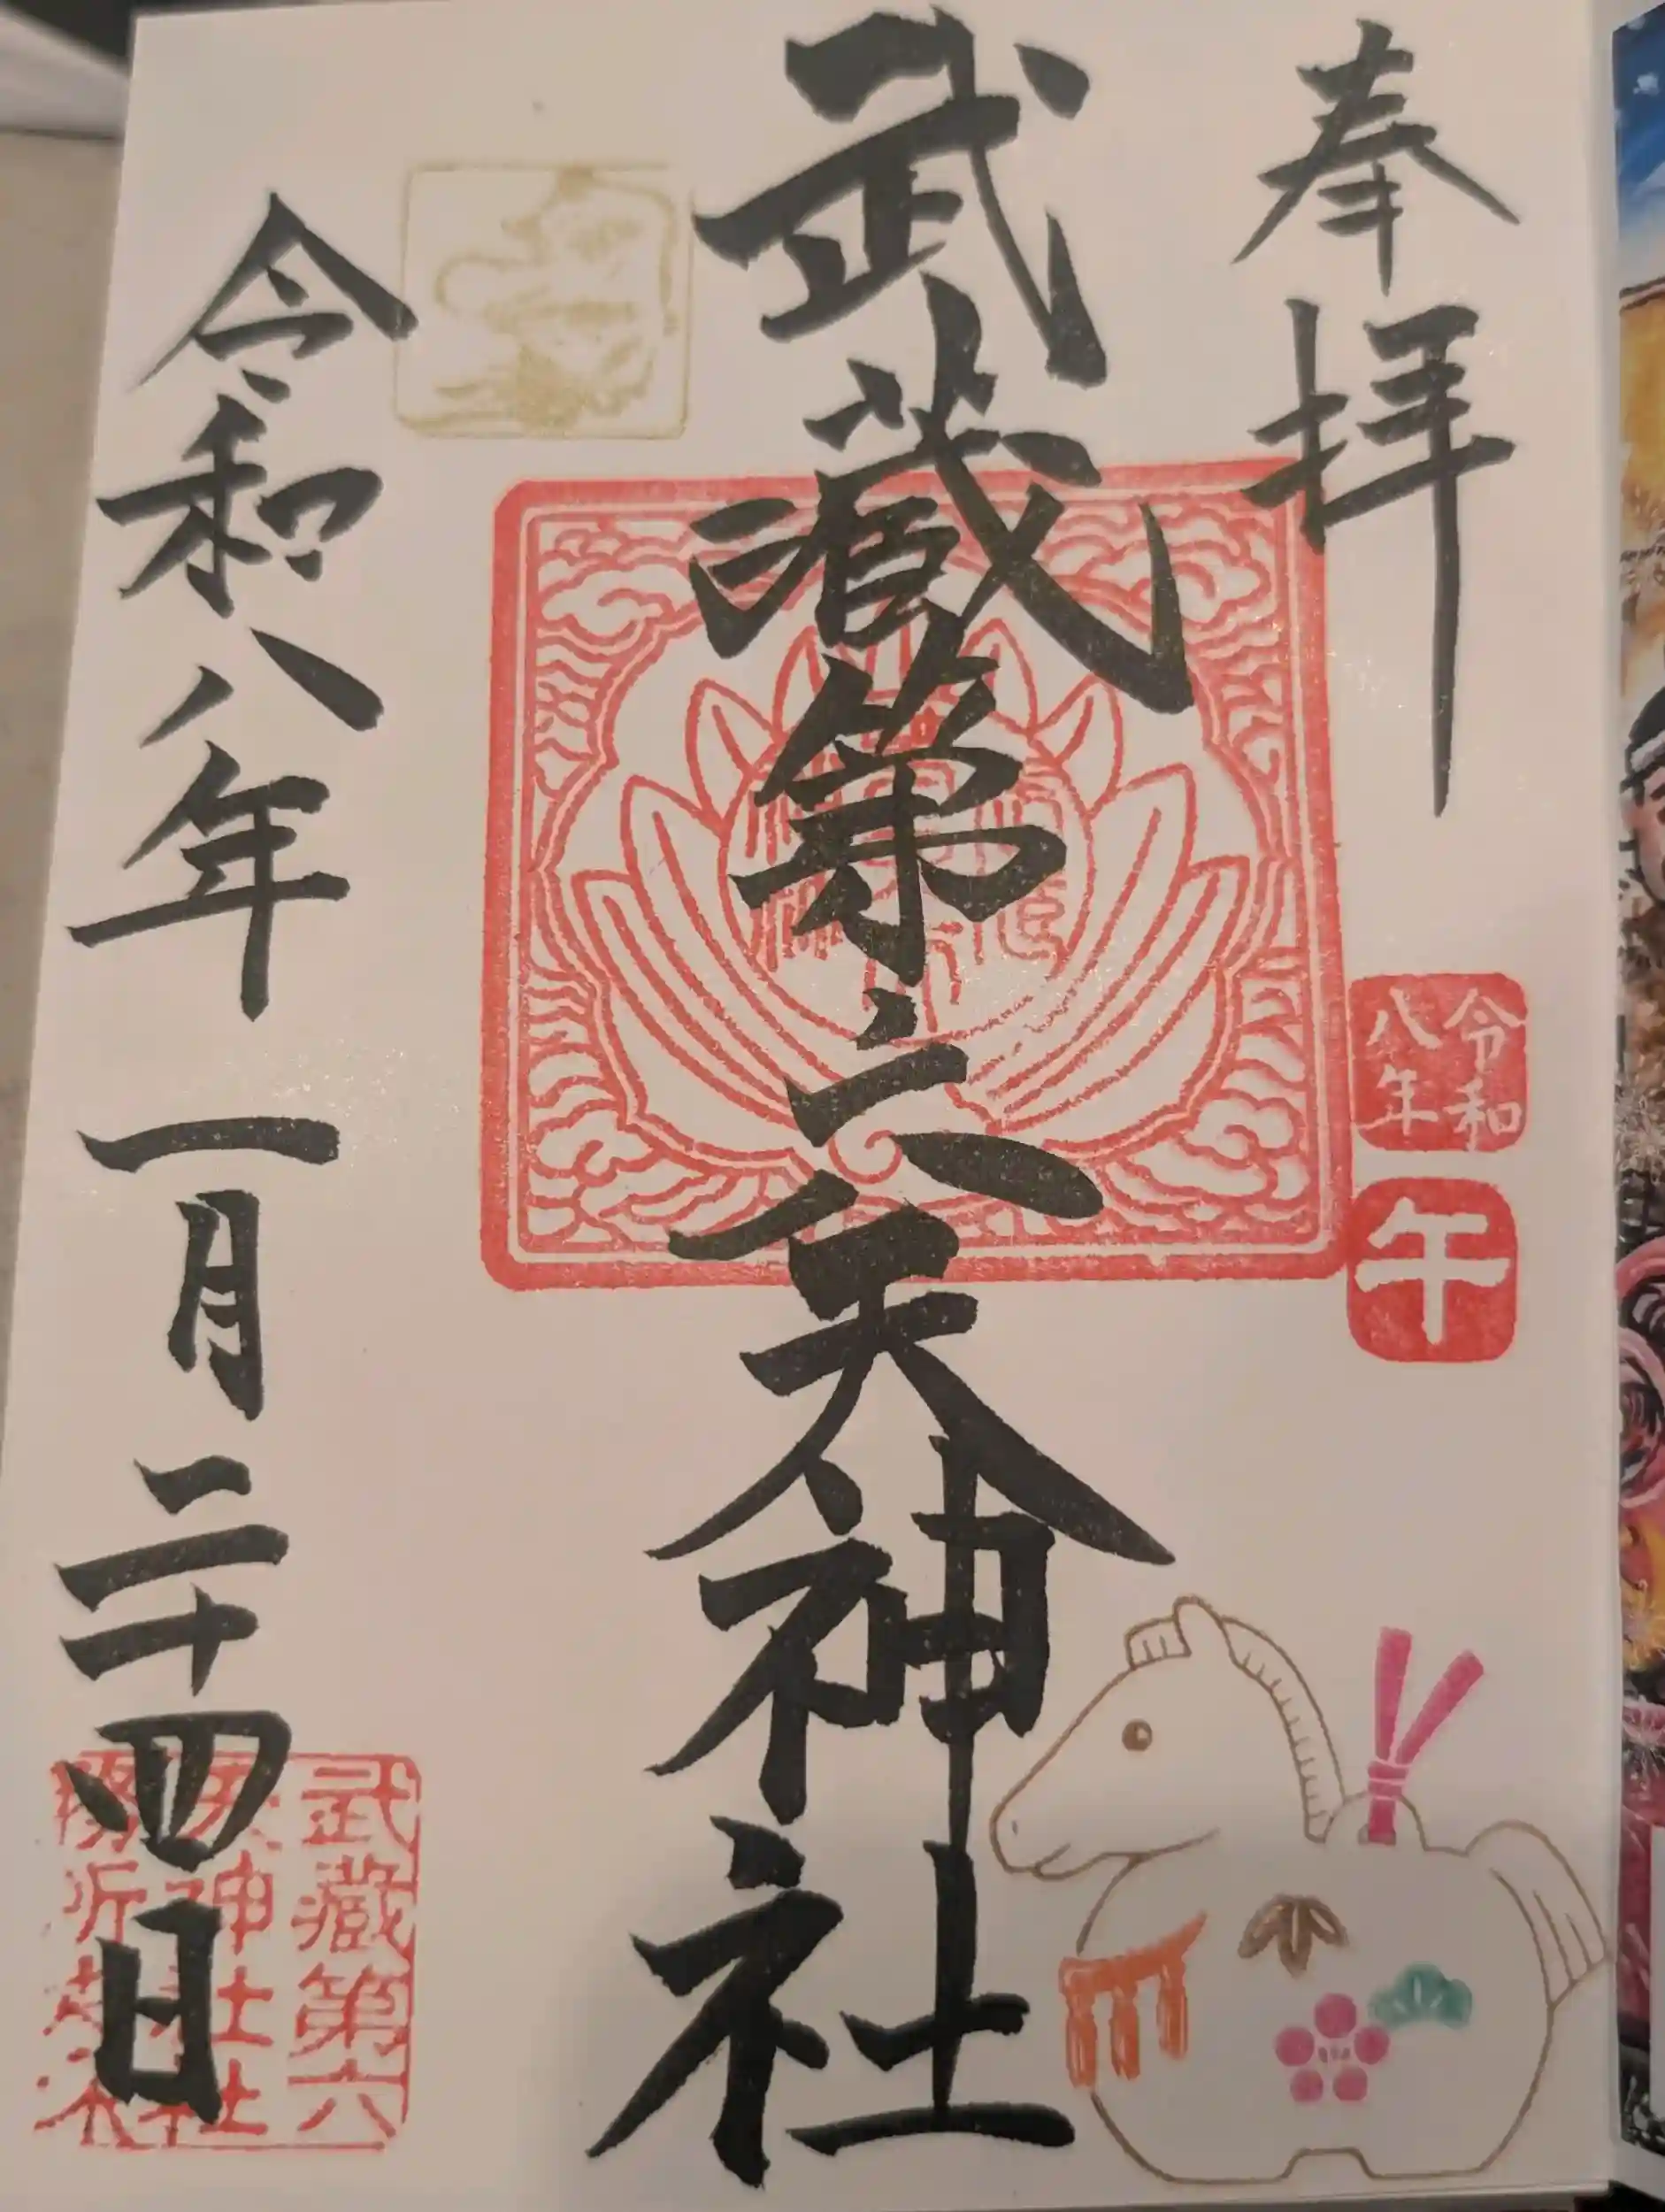 奉拝
令和
八年
午
武藏第六天神社
令和八年一月二十四日
武藏第六
天神社社